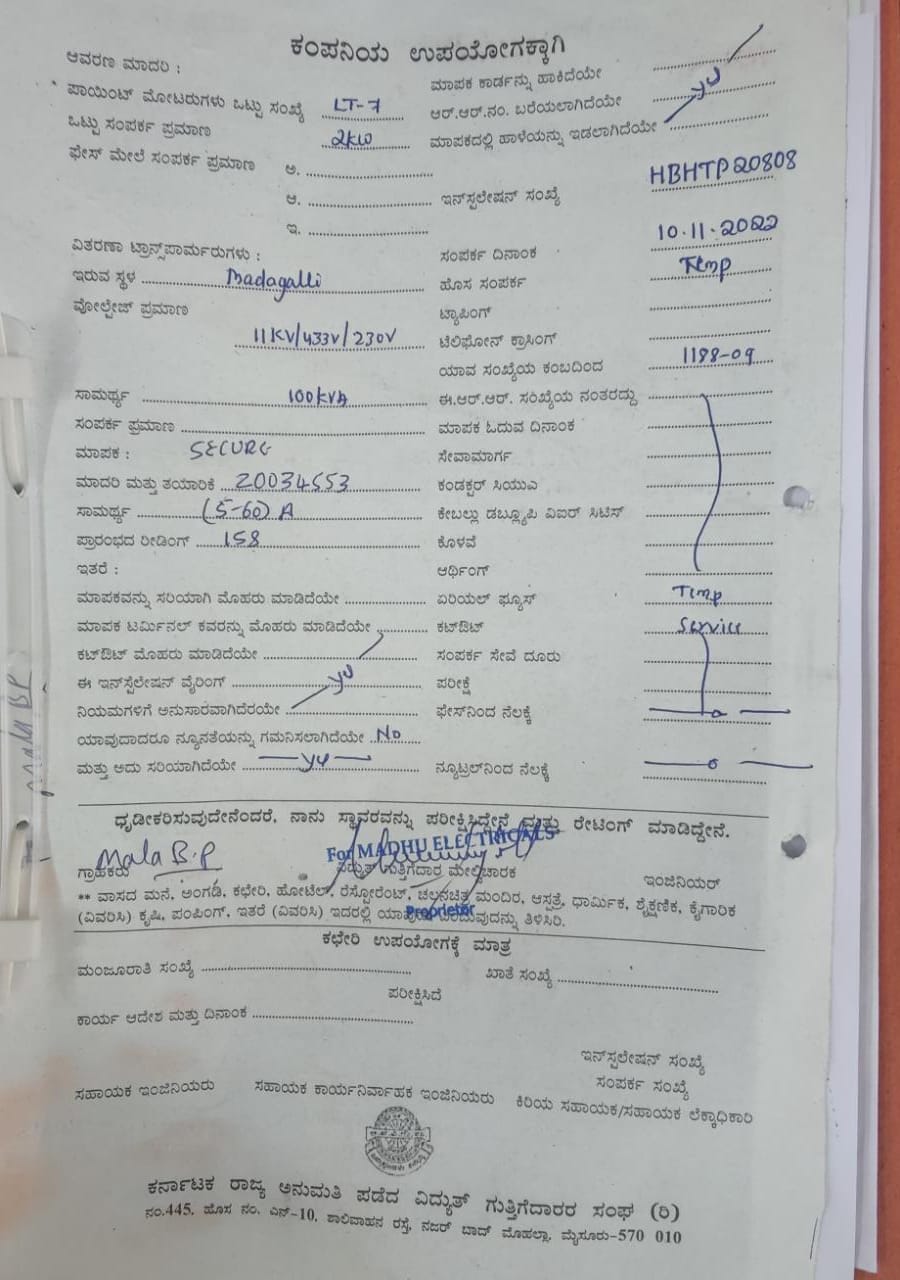 ಕಂಪನಿಯ ಉಪಯೋಗಕ್ಕಾಗಿ
ಆವರಣ ಮಾದರಿ : ಮಾಪಕ ಕಾರ್ಡನ್ನು ಹಾಕಿದೆಯೇ
ಪಾಯಿಂಟ್ ಮೋಟರುಗಳು ಒಟ್ಟು ಸಂಖ್ಯೆ LT-7 ಆರ್.ಆರ್.ನಂ. ಬರೆಯಲಾಗಿದೆಯೇ
ಒಟ್ಟು ಸಂಪರ್ಕ ಪ್ರಮಾಣ 2KW ಮಾಪಕದಲ್ಲಿ ಹಾಳೆಯನ್ನು ಇಡಲಾಗಿದೆಯೇ
ಫೇಸ್ ಮೇಲೆ ಸಂಪರ್ಕ ಪ್ರಮಾಣ ಅ.
ಆ. ಇನ್‌ಸ್ಟಲೇಷನ್ ಸಂಖ್ಯೆ HBHTP20808
ಇ.
ವಿತರಣಾ ಟ್ರಾನ್ಸ್‌ಪಾರ್ಮರುಗಳು : ಸಂಪರ್ಕ ದಿನಾಂಕ 10.11.2022
ಇರುವ ಸ್ಥಳ Badagalli ಹೊಸ ಸಂಪರ್ಕ Temp
ವೋಲ್ಟೇಜ್ ಪ್ರಮಾಣ ಟ್ಯಾಪಿಂಗ್
11KV/433V/230V ಟೆಲಿಫೋನ್ ಕ್ರಾಸಿಂಗ್
ಯಾವ ಸಂಖ್ಯೆಯ ಕಂಬದಿಂದ 1198-09
ಸಾಮರ್ಥ್ಯ 100KVA ಈ.ಆರ್.ಆರ್. ಸಂಖ್ಯೆಯ ನಂತರದ್ದು
ಸಂಪರ್ಕ ಪ್ರಮಾಣ ಮಾಪಕ ಓದುವ ದಿನಾಂಕ
ಮಾಪಕ : SECURE ಸೇವಾಮಾರ್ಗ
ಮಾದರಿ ಮತ್ತು ತಯಾರಿಕೆ 20034553 ಕಂಡಕ್ಟರ್ ಸಿಯುಎ
ಸಾಮರ್ಥ್ಯ (5-60) A ಕೇಬಲ್ಲು ಡಬ್ಲ್ಯೂಪಿ ವಿಐರ್ ಸಿಟಿಸ್
ಪ್ರಾರಂಭದ ರೀಡಿಂಗ್ 158 ಕೊಳವೆ
ಇತರೆ : ಆರ್ಥಿಂಗ್
ಮಾಪಕವನ್ನು ಸರಿಯಾಗಿ ಮೊಹರು ಮಾಡಿದೆಯೇ ಏರಿಯಲ್ ಫ್ಯೂಸ್ Temp
ಮಾಪಕ ಟರ್ಮಿನಲ್ ಕವರನ್ನು ಮೊಹರು ಮಾಡಿದೆಯೇ ಕಟ್‌ಔಟ್ Service
ಕಟ್‌ಔಟ್ ಮೊಹರು ಮಾಡಿದೆಯೇ ಸಂಪರ್ಕ ಸೇವೆ ದೂರು
ಈ ಇನ್‌ಸ್ಟಲೇಷನ್ ವೈರಿಂಗ್ ಪರೀಕ್ಷೆ
ನಿಯಮಗಳಿಗೆ ಅನುಸಾರವಾಗಿದೆರಯೇ ಫೇಸ್‌ನಿಂದ ನೆಲಕ್ಕೆ
ಯಾವುದಾದರೂ ನ್ಯೂನತೆಯನ್ನು ಗಮನಿಸಲಾಗಿದೆಯೇ No
ಮತ್ತು ಅದು ಸರಿಯಾಗಿದೆಯೇ ನ್ಯೂಟ್ರಲ್‌ನಿಂದ ನೆಲಕ್ಕೆ
ಧೃಡೀಕರಿಸುವುದೇನೆಂದರೆ, ನಾನು ಸ್ಥಾವರವನ್ನು ಪರೀಕ್ಷಿಸಿದ್ದೇನೆ ಮತ್ತು ರೇಟಿಂಗ್ ಮಾಡಿದ್ದೇನೆ.
Mala B.P For MADHU ELECTRICALS
ಗ್ರಾಹಕರು ವಿದ್ಯುತ್ ಗುತ್ತಿಗೆದಾರ ಮೇಲ್ವಿಚಾರಕ ಇಂಜಿನಿಯರ್
** ವಾಸದ ಮನೆ, ಅಂಗಡಿ, ಕಛೇರಿ, ಹೋಟೆಲ್, ರೆಸ್ಟೋರೆಂಟ್, ಚಲನಚಿತ್ರ ಮಂದಿರ, ಆಸ್ಪತ್ರೆ, ಧಾರ್ಮಿಕ, ಶೈಕ್ಷಣಿಕ, ಕೈಗಾರಿಕ
(ವಿವರಿಸಿ) ಕೃಷಿ, ಪಂಪಿಂಗ್, ಇತರೆ (ವಿವರಿಸಿ) ಇದರಲ್ಲಿ Proprietor ತಿಳಿಸಿರಿ.
ಕಛೇರಿ ಉಪಯೋಗಕ್ಕೆ ಮಾತ್ರ
ಮಂಜೂರಾತಿ ಸಂಖ್ಯೆ ಖಾತೆ ಸಂಖ್ಯೆ
ಪರೀಕ್ಷಿಸಿದೆ
ಕಾರ್ಯ ಆದೇಶ ಮತ್ತು ದಿನಾಂಕ
ಇನ್‌ಸ್ಪಲೇಷನ್ ಸಂಖ್ಯೆ
ಸಂಪರ್ಕ ಸಂಖ್ಯೆ
ಸಹಾಯಕ ಇಂಜಿನಿಯರು ಸಹಾಯಕ ಕಾರ್ಯನಿರ್ವಾಹಕ ಇಂಜಿನಿಯರು ಕಿರಿಯ ಸಹಾಯಕ/ಸಹಾಯಕ ಲೆಕ್ಕಾಧಿಕಾರಿ
ಕರ್ನಾಟಕ ರಾಜ್ಯ ಅನುಮತಿ ಪಡೆದ ವಿದ್ಯುತ್ ಗುತ್ತಿಗೆದಾರರ ಸಂಘ (ರಿ)
ನಂ.445, ಹೊಸ ನಂ. ಎನ್-10, ಶಾಲಿವಾಹನ ರಸ್ತೆ, ನಜರ್ ಬಾದ್ ಮೊಹಲ್ಲಾ, ಮೈಸೂರು-570 010